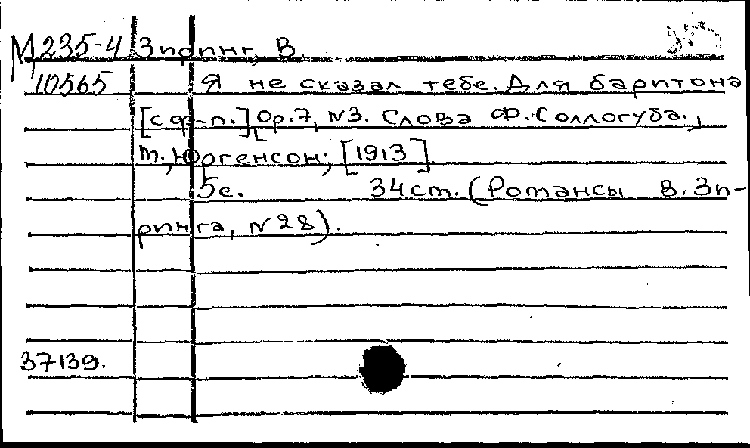 М 235-4 Зиринг, В.
10565 Я не сказал тебе. Для баритона
[с ф-п.] Ор.7, №3. Слова Ф. Соллогуба.,
м., Юргенсон; [1913]
5с. 34 ст. (Романсы В. Зи-
ринга, №28).
37139.